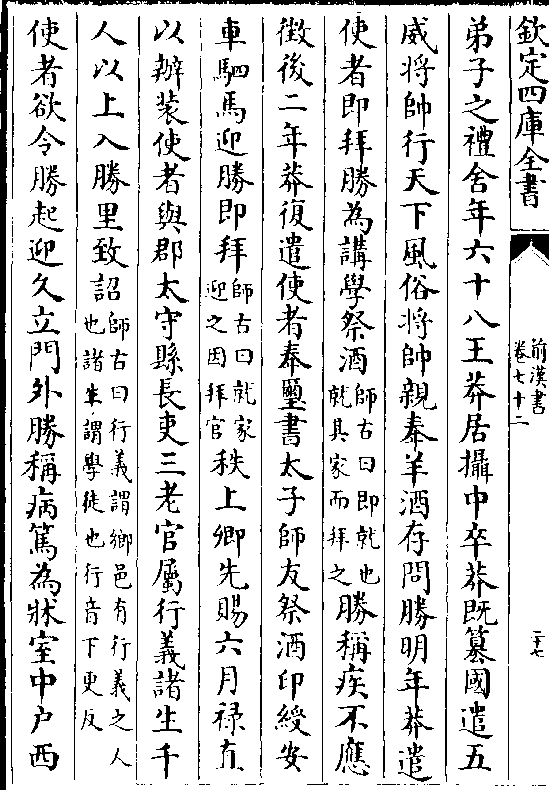 欽定四庫全書
前漢書
卷七十二
二十七
弟子之禮舍年六十八王莽居攝中卒莽既篡國遣五
威將帥行天下風俗將帥親奉羊酒存問勝明年莽遣
使者即拜勝為講學祭酒師古曰即就也
就其家而拜之勝稱疾不應
徵後二年莽復遣使者奉璽書太子師友祭酒印綬安
車駟馬迎勝即拜師古曰就家
迎之因拜官秩上卿先賜六月祿直
以辦裝使者與郡太守縣長吏三老官屬行義諸生千
人以上入勝里致詔師古曰行義謂鄉邑有行義之人
也諸生謂學徒也行音下更反
使者欲令勝起迎久立門外勝稱病篤為牀室中户西